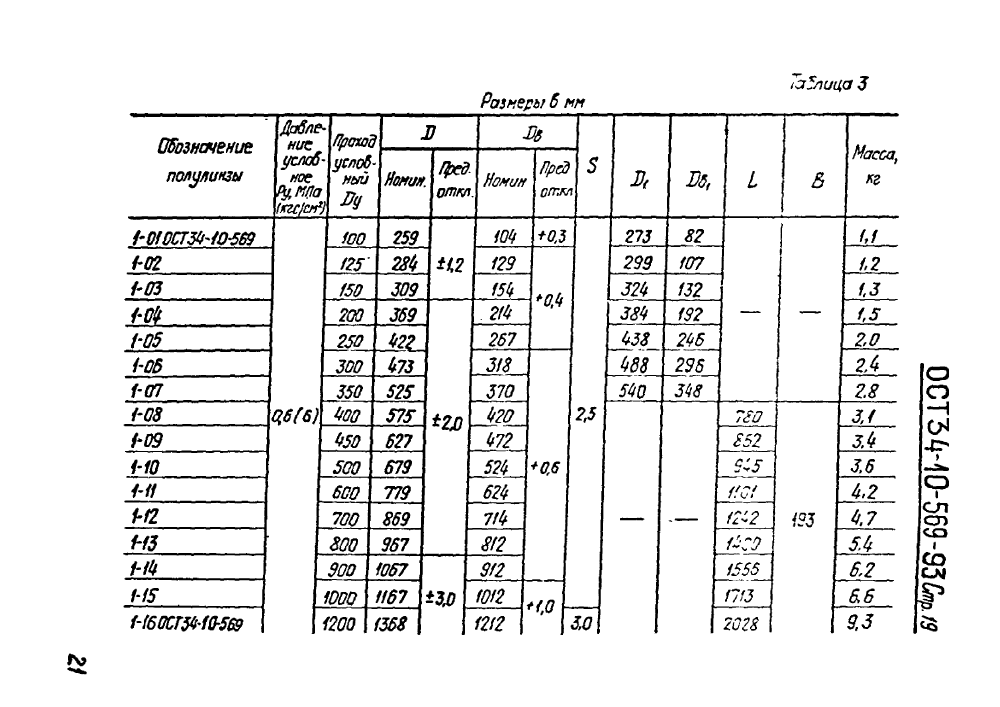 Таблица 3
Размеры в мм
Обозначение полулинзы | Давление условное Ру, МПа (кгс/см²) | Проход условный Dу | D | Dв | S | D₁ | Dв₁ | L | B | Масса, кг
Номин. | Пред. откл. | Номин | Пред откл
1-01 ОСТ34-10-569 100 259 104 +0,3 273 82 1,1
1-02 125 284 ±1,2 129 299 107 1,2
1-03 150 309 154 +0,4 324 132 1,3
1-04 200 369 214 384 192 — — 1,5
1-05 250 422 267 438 246 2,0
1-06 300 473 318 488 296 2,4
1-07 350 525 370 540 348 2,8
1-08 0,6(6) 400 575 ±2,0 420 2,5 780 3,1
1-09 450 627 472 862 3,4
1-10 500 679 524 +0,6 945 3,6
1-11 600 779 624 4,2
1-12 700 869 714 — — 1242 193 4,7
1-13 800 967 812 5,4
1-14 900 1067 912 1556 6,2
1-15 1000 1167 ±3,0 1012 +1,0 1713 6,6
1-16 ОСТ34-10-569 1200 1368 1212 3,0 2028 9,3
ОСТ34-10-569-93 Стр.19
21